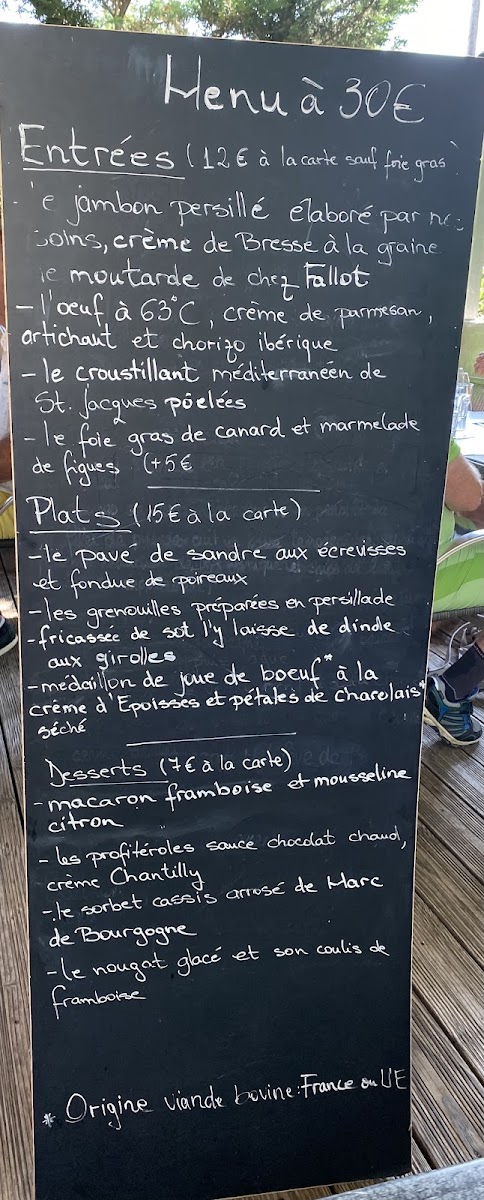 Menu à 30€
Entrées (12€ à la carte sauf foie gras
e jambon persillé élaboré par
soins, crème de Bresse à la graine
de moutarde de chez Fallot
- l'oeuf à 63°C, crème de parmesan,
artichaut et chorizo ibérique
- le croustillant méditerranéen de
St. Jacques poêlées
- le foie gras de canard et marmelade
de figues (+5€
Plats (15€ à la carte)
- le pavé de sandre aux écrevisses
et fondue de poireaux
- les grenouilles préparées en persillade
- fricassée de sot l'y laisse de dinde
aux girolles
- médaillon de joue de boeuf* à la
crème d'Epoisses et pétales de charolais*
séché
Desserts (7€ à la carte)
- macaron framboise et mousseline
citron
- les profitéroles sauce chocolat chaud,
crème Chantilly
- le sorbet cassis arrosé de Marc
de Bourgogne
- le nougat glacé et son coulis de
framboise
* Origine viande bovine: France ou UE